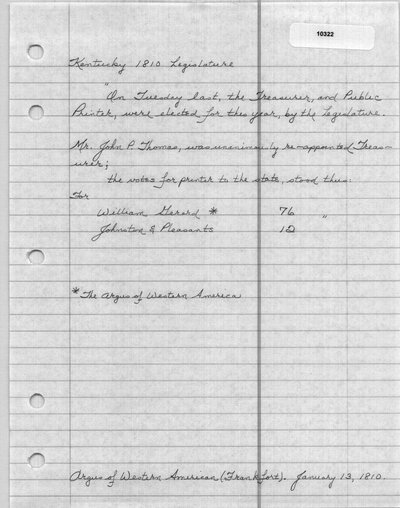 10322
Kentucky 1810 Legislature
"On Tuesday last, the Treasurer, and Public
Printer, were elected for this year, by the Legislature.
Mr. John P. Thomas, was unanimously re-appointed Treas-
urer;
the votes for printer to the state, stood thus:
For
William Gerard * 76 "
Johnston & Pleasants 12
* The Argus of Western America
Argus of Western American (Frankfort). January 13, 1810.